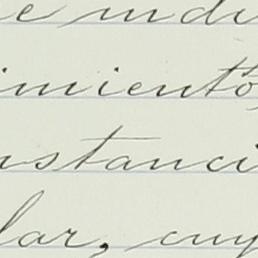 e indi
imiento,
nstanci
lar, cuy